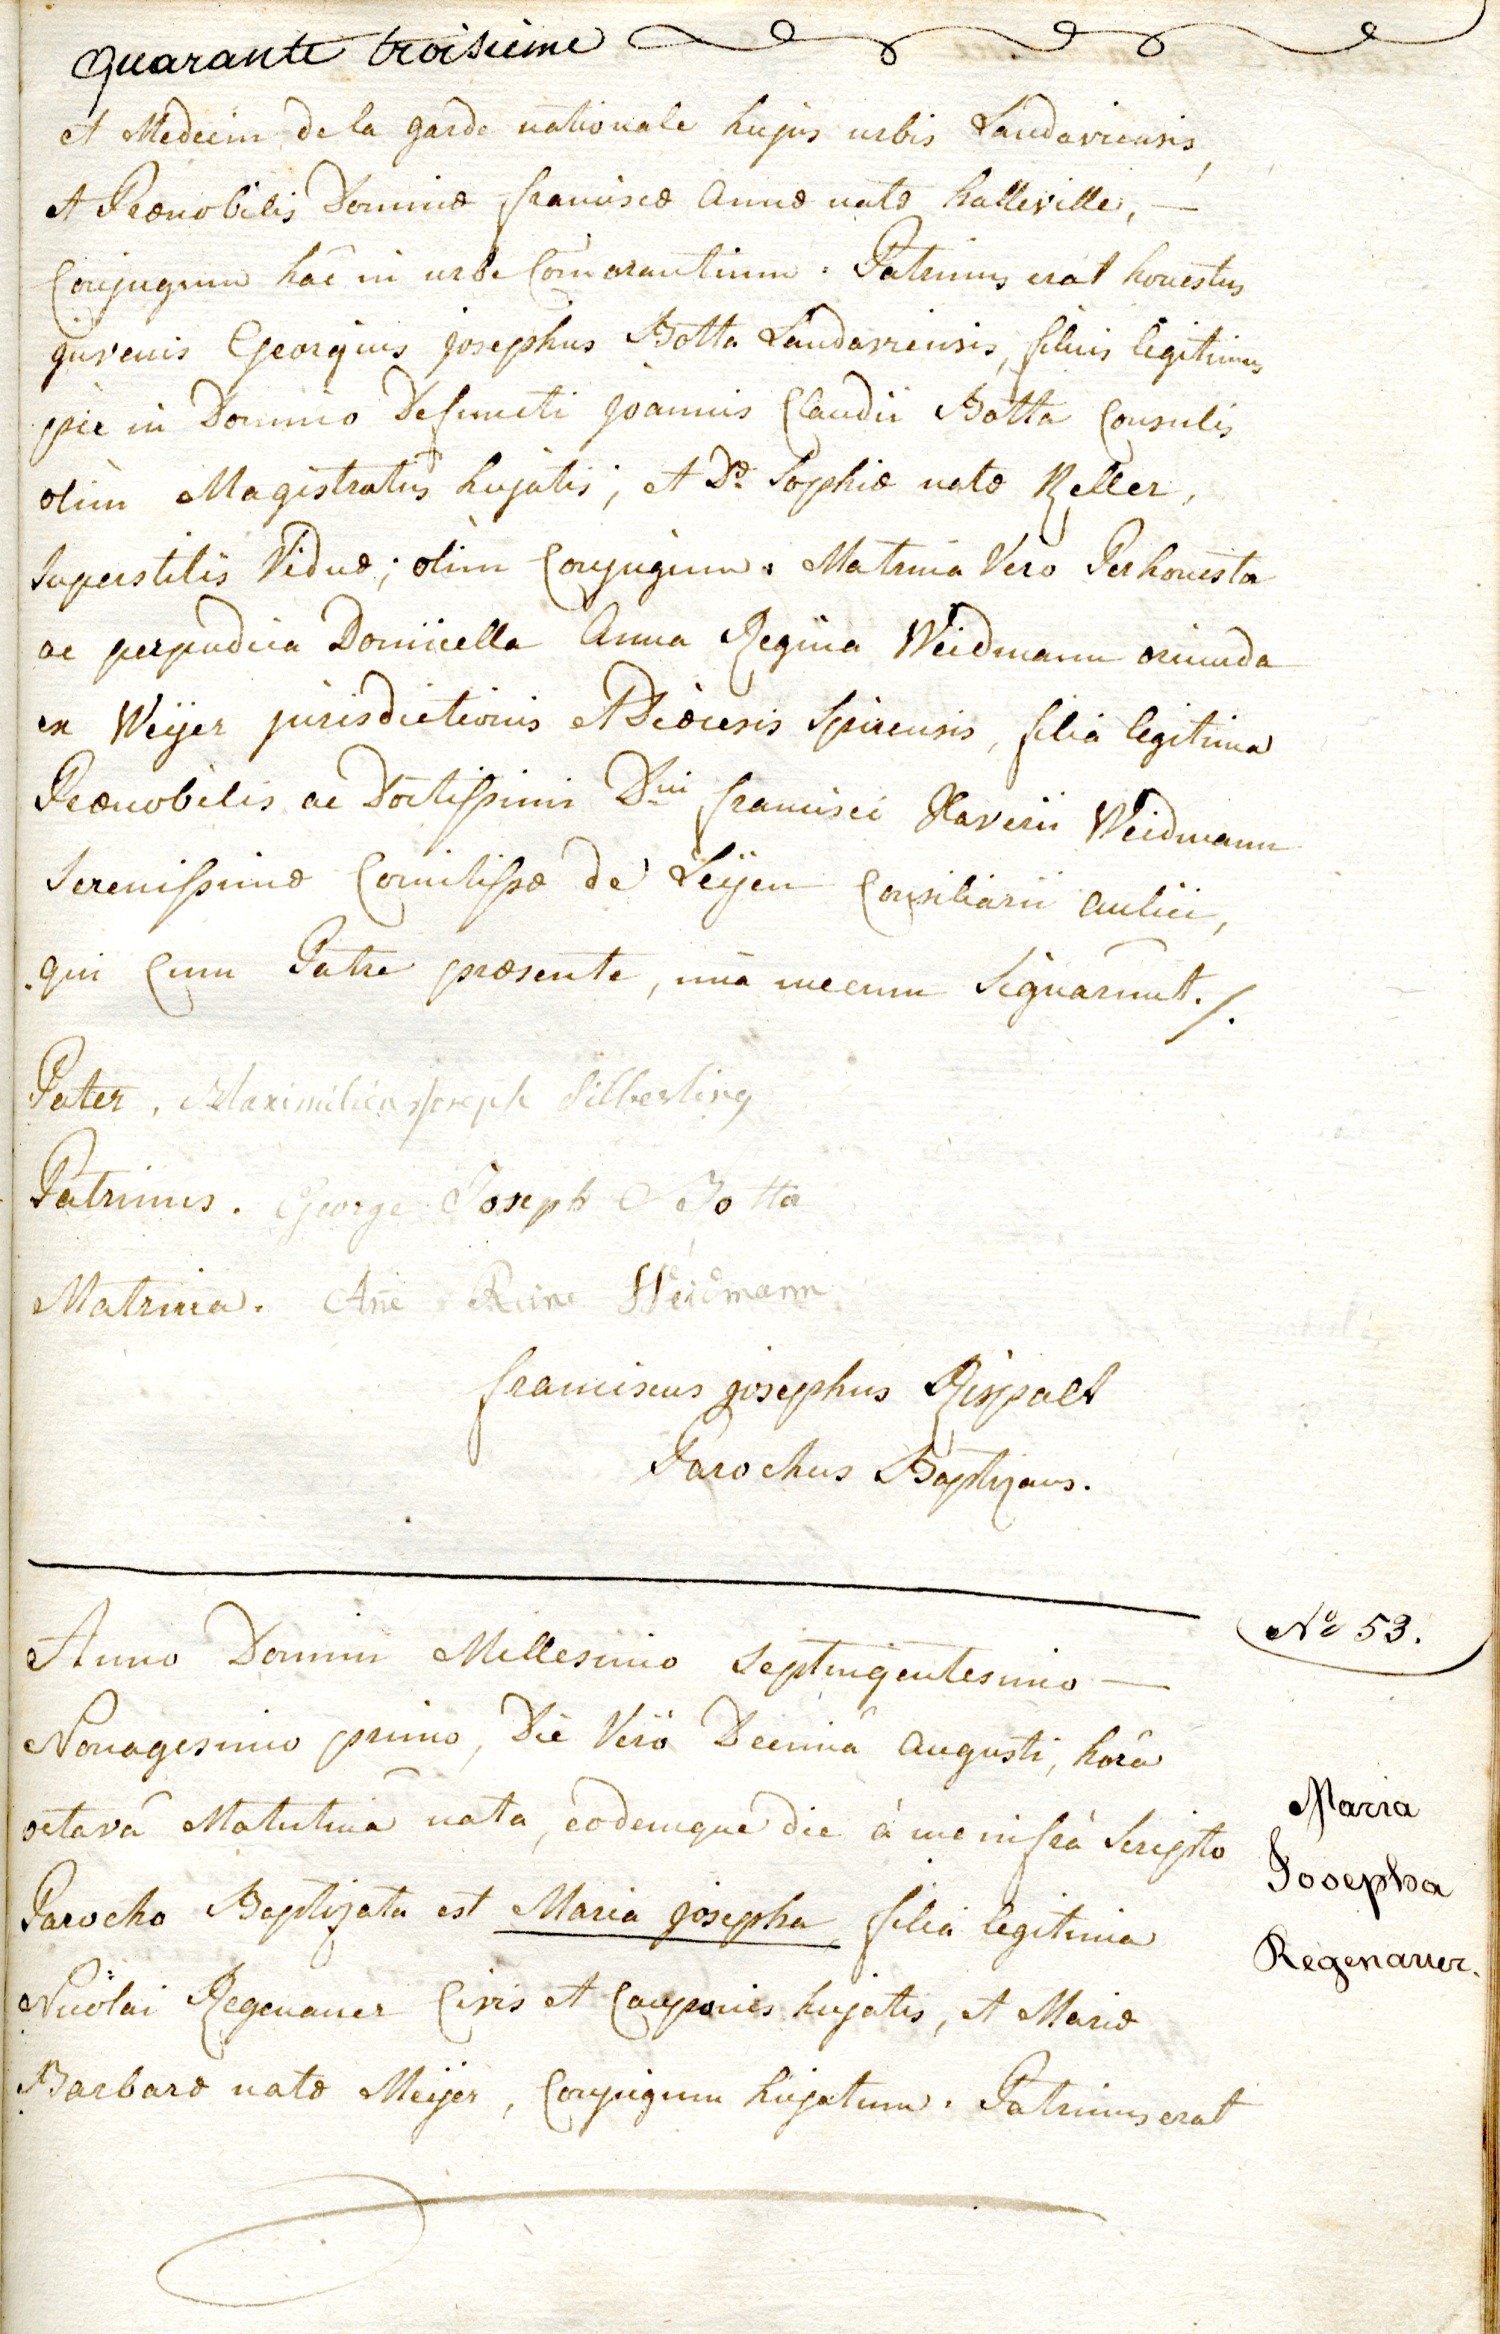 quarante troisieme
et Medecin de la garde nationale hujus urbis Landaviensis,
et Prænobilis Dominæ franciscæ Annæ natæ halleville, —
Conjugum hac in urbe Com̄orantium. Patrinus erat honestus
juvenis Georgius josephus Botta Landaviensis, filius legitimus
pie in Domino Defuncti joannis Claudii Botta Consulis
olim Magistratus hujatis, et Dæ Sophiæ natæ Keller,
superstitis Viduæ; olim Conjugum. Matrina Vero Perhonesta
ac perpudica Domicella Anna Regina Weidmann oriunda
ex Weÿer jurisdictionis et Diœcesis Spirensis, filia legitima
Prænobilis ac Doctissimi Dni francisci Xaverii Weidmann
Serenissimæ Comitissæ de Leÿen Consiliarii aulici,
qui Cum Patre præsente, una mecum Signarunt. /.
Pater. Maximilien Joseph Silberling
Patrinus. George Joseph Botta
Matrina. Ane Reine Weidmann
franciscus josephus Rispalt
Parochus Baptizans.
No 53.
Anno Domini Millesimo Septingentesimo —
Nonagesimo primo, Die Verò Decimâ Augusti, horâ
octavâ Matutinâ nata, eodemque die à me infrà Scripto
Parocho Baptizata est Maria josepha, filia legitima
Nicolai Regenauer Civis et Cauponis hujatis, et Mariæ
Barbaræ natæ Meÿer, Conjugum hujatum. Patrinus erat
Maria
Josepha
Regenauer.